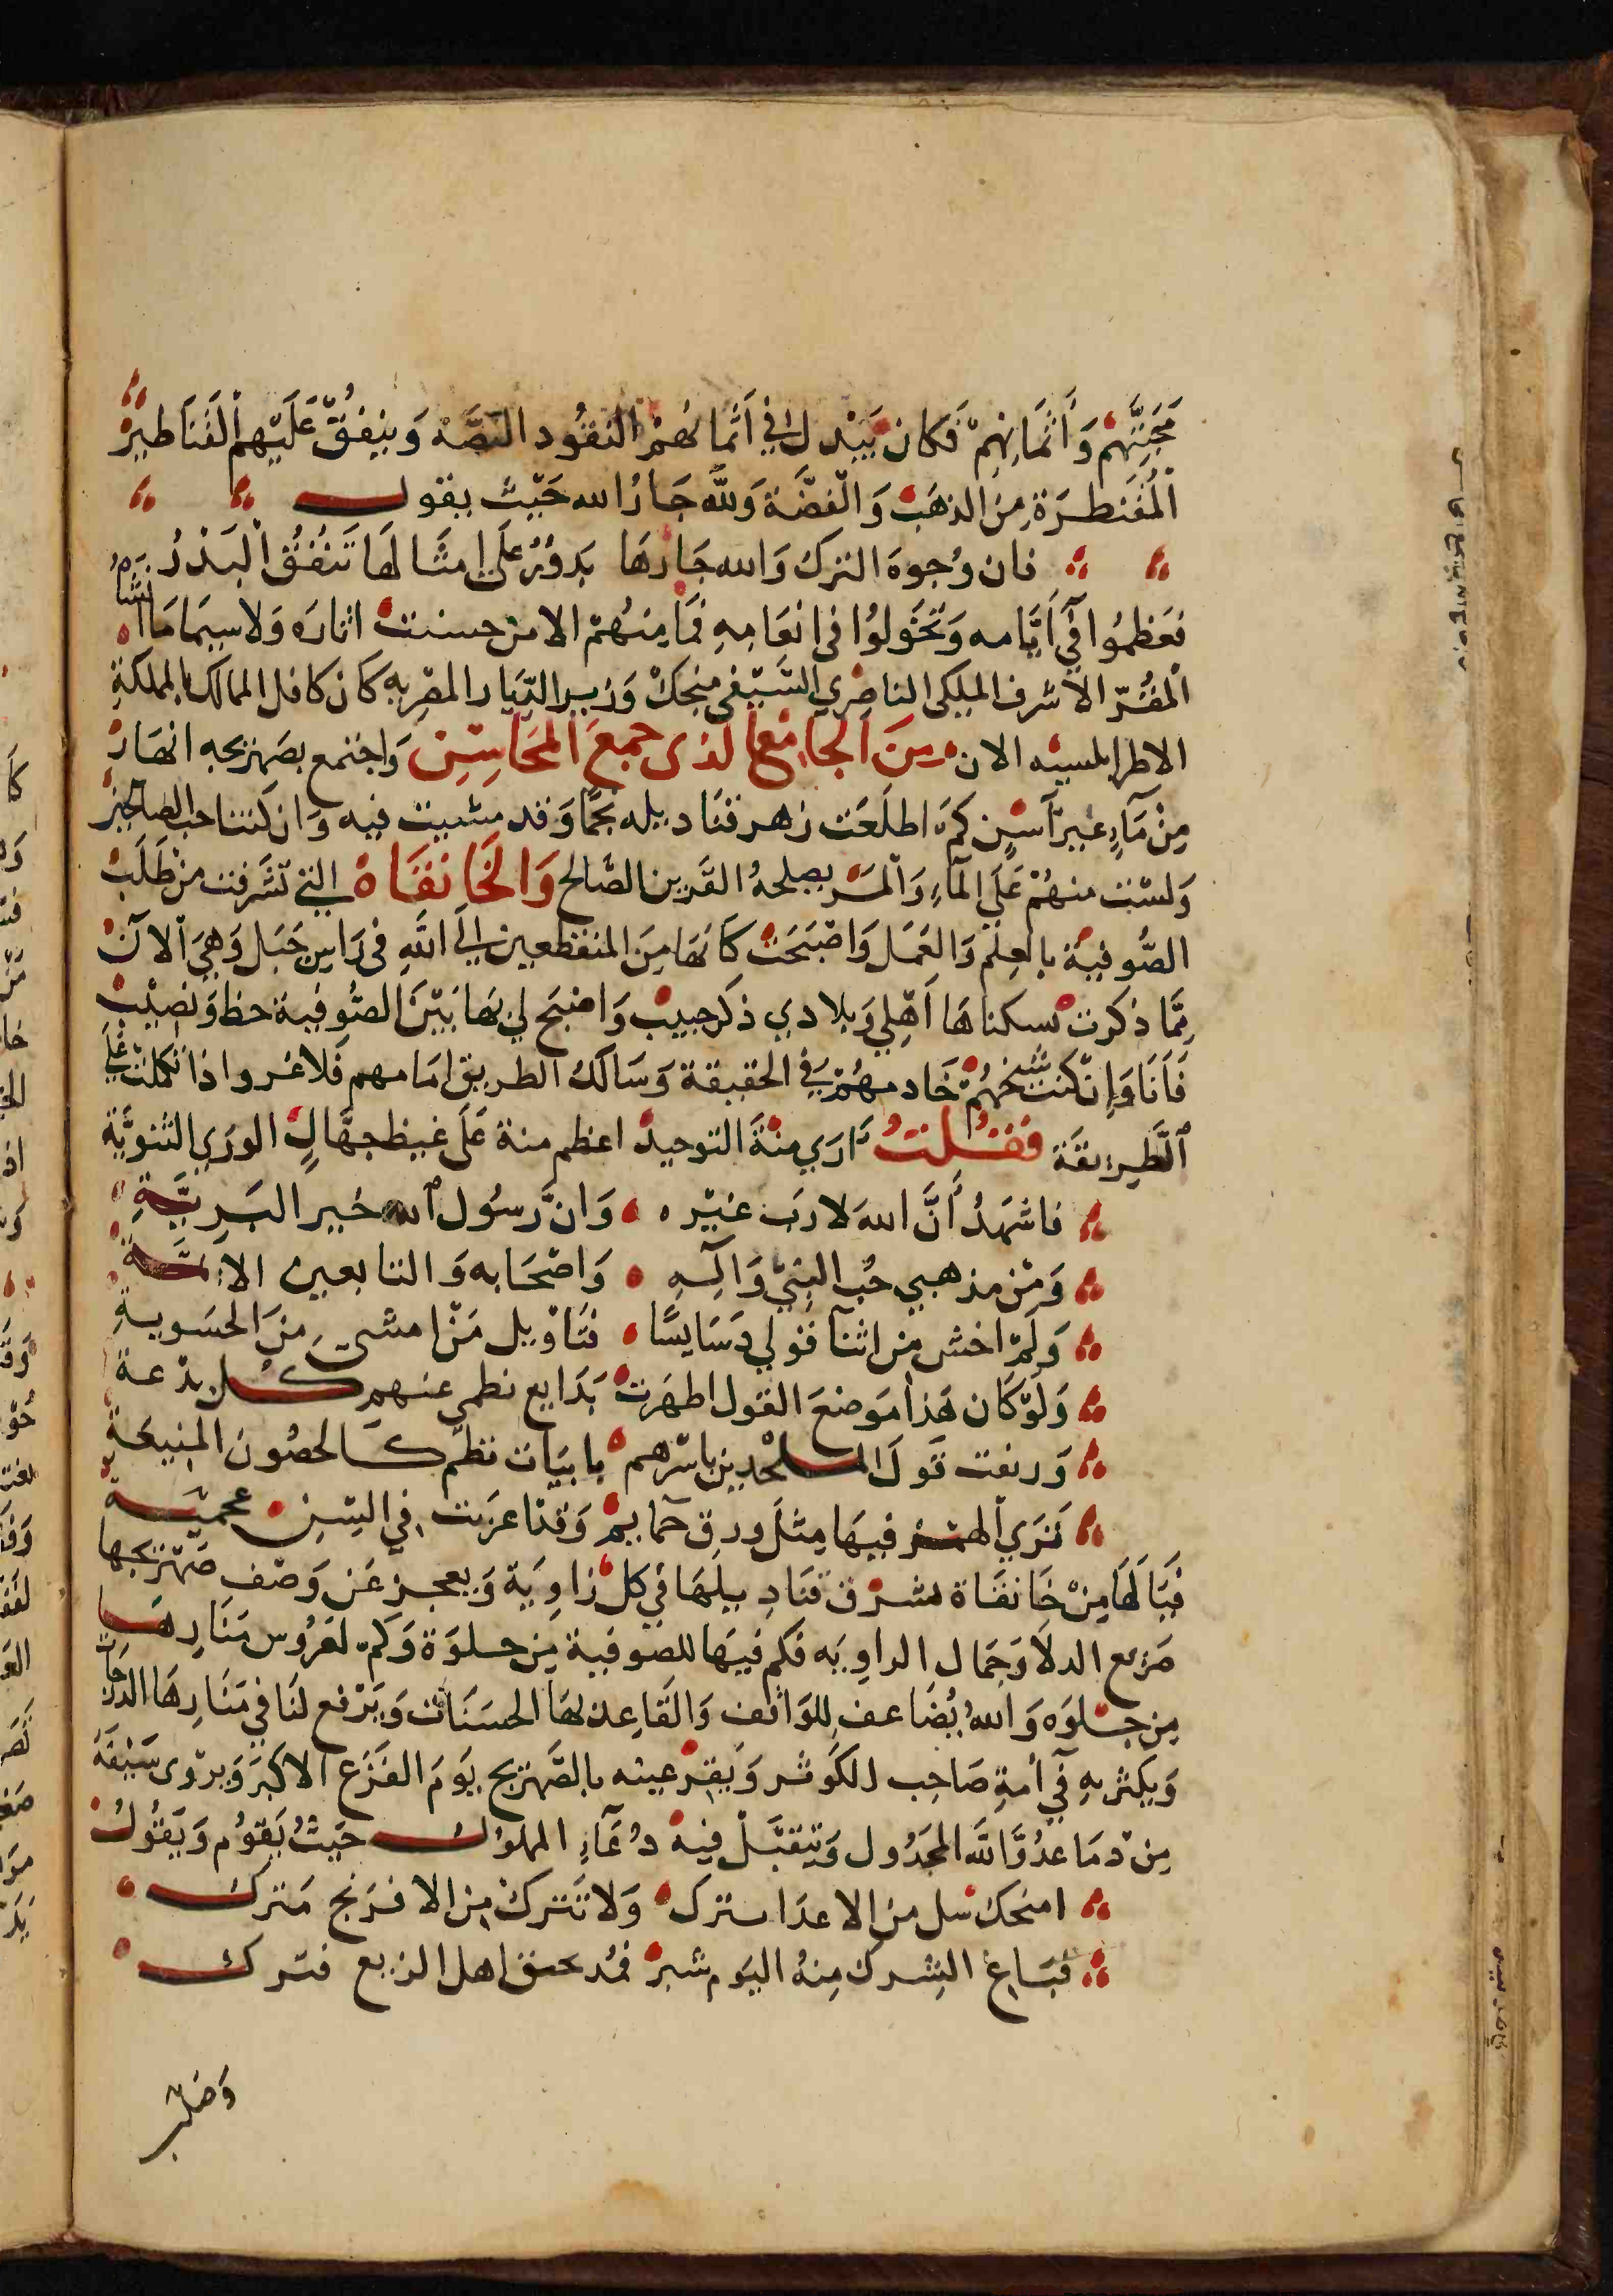 مَحَبَّتِهِمْ وَأَثْمَانِهِمْ فَكان يَبْدل في أَثْمانهم النقُود النضَّة وَينفقُ عَلَيْهم القَنَاطيرَ
المُقَنطرَة مِنَ الذهَب وَالفضَّة وَلله جَارُ الله حَيْث يقول
فان وُجوهَ الترك وَالله جَارهَا بدورٌ عَلَى امثَالهَا تَنفقُ البَدْرُ
فعَظمُوا في أيَّامه وَتخَولوُا في انعَامِهِ فَمَا مِنهُمْ الا من حسنت اثاره وَلا سيمَا مَا انشأه
المقَرّ الاشرف الملكى الناصري السَّيْفى منجك وَزير الديَار المصْريه كان كافل الممالك بالمملكةِ
الاطرابلسيه الان مِنَ الجَامع الذى جمعَ المحَاسِن وَاجتمع بصَهريجه انهَار
مِنْ مَآءٍ غيرآسِنٍ كم اطلعَت زهر قنَاديله نجمًا وَقد مشيت فيه وَان كنت احب الصالحين
وَلسْت منهُمْ عَلَى المآءِ وَالمرء يصلحهُ القَرين الصَّالح وَالخَانقَاة التى تشَرفت من طَلَبَ
الصُّوفيَة بالعلم وَالعَمَل وَاصْبَحَت كانهَا مِنَ المنقطعين إلَى اللهِ في رَاس جَبَل وَهيَ الآن
مِمَّا ذكرت بسكناهَا أهْلي وَبلادي ذكر حبيب وَاصْبَح لي بهَا بَيْنَ الصُّوفية حظ وَنصيْب
فَأنَا وَإن كنت شيخهُمْ خَادمهُمْ في الحقيقة وَسَالك الطريق امَامهم فَلا غروا ذا تكلمت عَلى
الطَّرِيقَة فَقُلتُ أرَي منةَ التوحيد اعظم منة عَلَى غيظ جهَّالِ الورَي الثنويَّة
فاشهَدُ أنَّ اللهَ لا رَب غيْره وَان رَسُول الله خير البَرِيَّةِ
وَمْن مذهبي حُب النبيّ وَآلِهِ وَاصْحَابه وَالتابعين الائمةِ
وَلَمْ اخش من اثنآ قولي دَسَايسًا فتَاوْيل مَنْ امشى مِنَ الحسَويةِ
وَلَوْ كَان هَذا مَوضعَ القول اظهرَت بَدَايع نظمى عنهم كل بدْعة
وَرفت قولَ الملحدين باسْرهم بابيَات نظم كالحصُون المنيعَةِ
تَرَي الهمز فيهَا مِثلَ ورق حمايم وَقد اعرَبت في السِن عجميةِ
فَيَا لهَا مِنْ خَانقَاة تشرق قنَادِيلهَا في كل زاوِيَة وَيعجز عَن وَصْف صَهريجهَا
صَريع الدلا وَجمَال الراويَه فكم فيهَا للصوفية من خلوَة وَكم لعَرُوس مَنَارِهَا
مِن جلوَه وَاللهُ يُضَاعف للوَاقف وَالقَاعِد بهَا الحسَنَات وَيَرْفع لنَا في مَنَارهَا الدرَجَات
وَيكثر بهِ في أمةِ صَاحِب الكَوثر وَيقر عينه بالصَّهريج يَوَم الفَزَع الاكبرَ وَيرْوى سَيْفَهُ
مِنْ دمَا عدُوَّ اللهَ المجَدُول وَيتقبَّلْ فيه دُعَآءِ المملوك حَيثُ يَقوُم وَيَقوُلُ
امنجك سل من الاعدَا سترك وَلا تَترك من الافرَنج مَترك
فبَاغ الشِرك مِنهُ اليَوم شبر فمُد عنق اهل الزيع فترك
وَصَلى